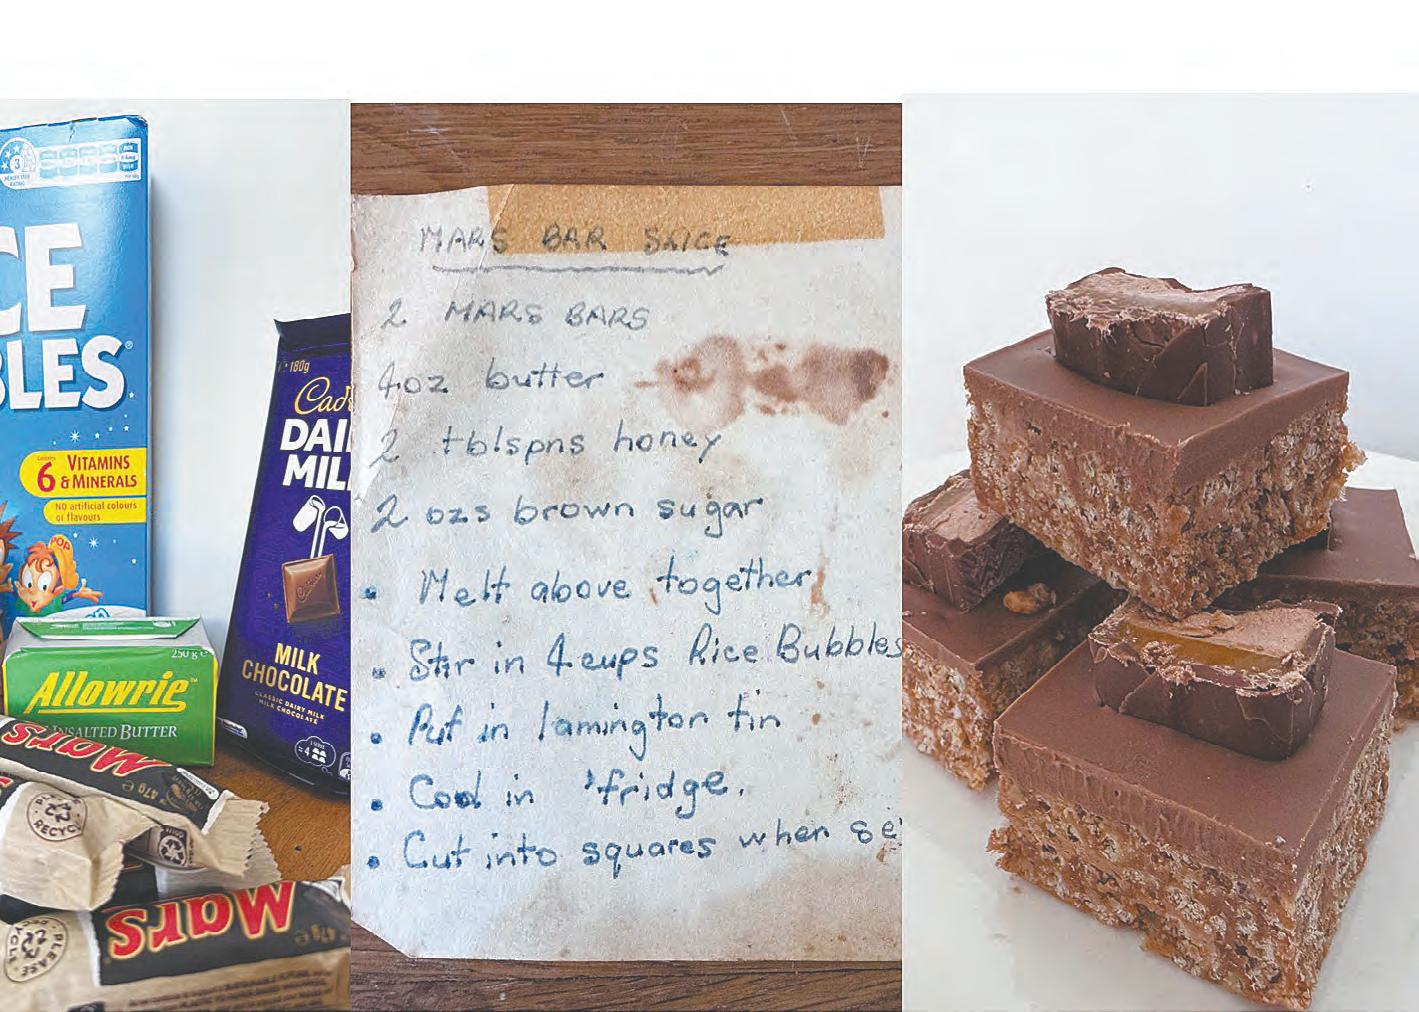 3
HEALTH STAR
RATING
CE
BLES®
Contains
6 VITAMINS
& MINERALS
NO artificial colours
or flavours
POP
250 g e
Allowrie™
UNSALTED BUTTER
Mars
47g e
PLEASE
RECYCLE
Mars
47g e
PLEASE
RECYCLE
180g
Cad
DAI
MIL
Cadbury
MILK
CHOCOLATE
CLASSIC DAIRY MILK
MILK CHOCOLATE
MARS BAR SLICE
2 MARS BARS
4oz butter
2 tblspns honey
2 ozs brown sugar
• Melt above together
• Stir in 4 cups Rice Bubbles
• Put in lamington tin
• Cool in 'fridge.
• Cut into squares when se